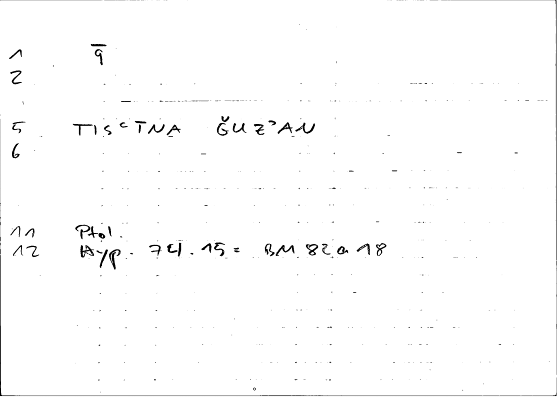 1 q̄
2
5 TISᶜĪNA ĞUZᵓAN
6
11 Ptol.
12 Hyp. 741.15 = BM 82a18